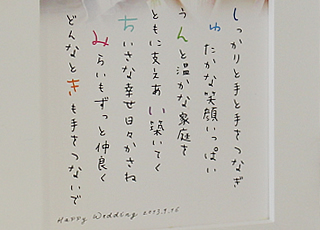 しっかりと手と手をつなぎ
ゆたかな笑顔いっぱい
うんと温かな家庭を
ともに支えあい築いてく
ちいさな幸せ日々かさね
みらいもずっと仲良く
どんなときも手をつないで
Happy Wedding 2013.9.16